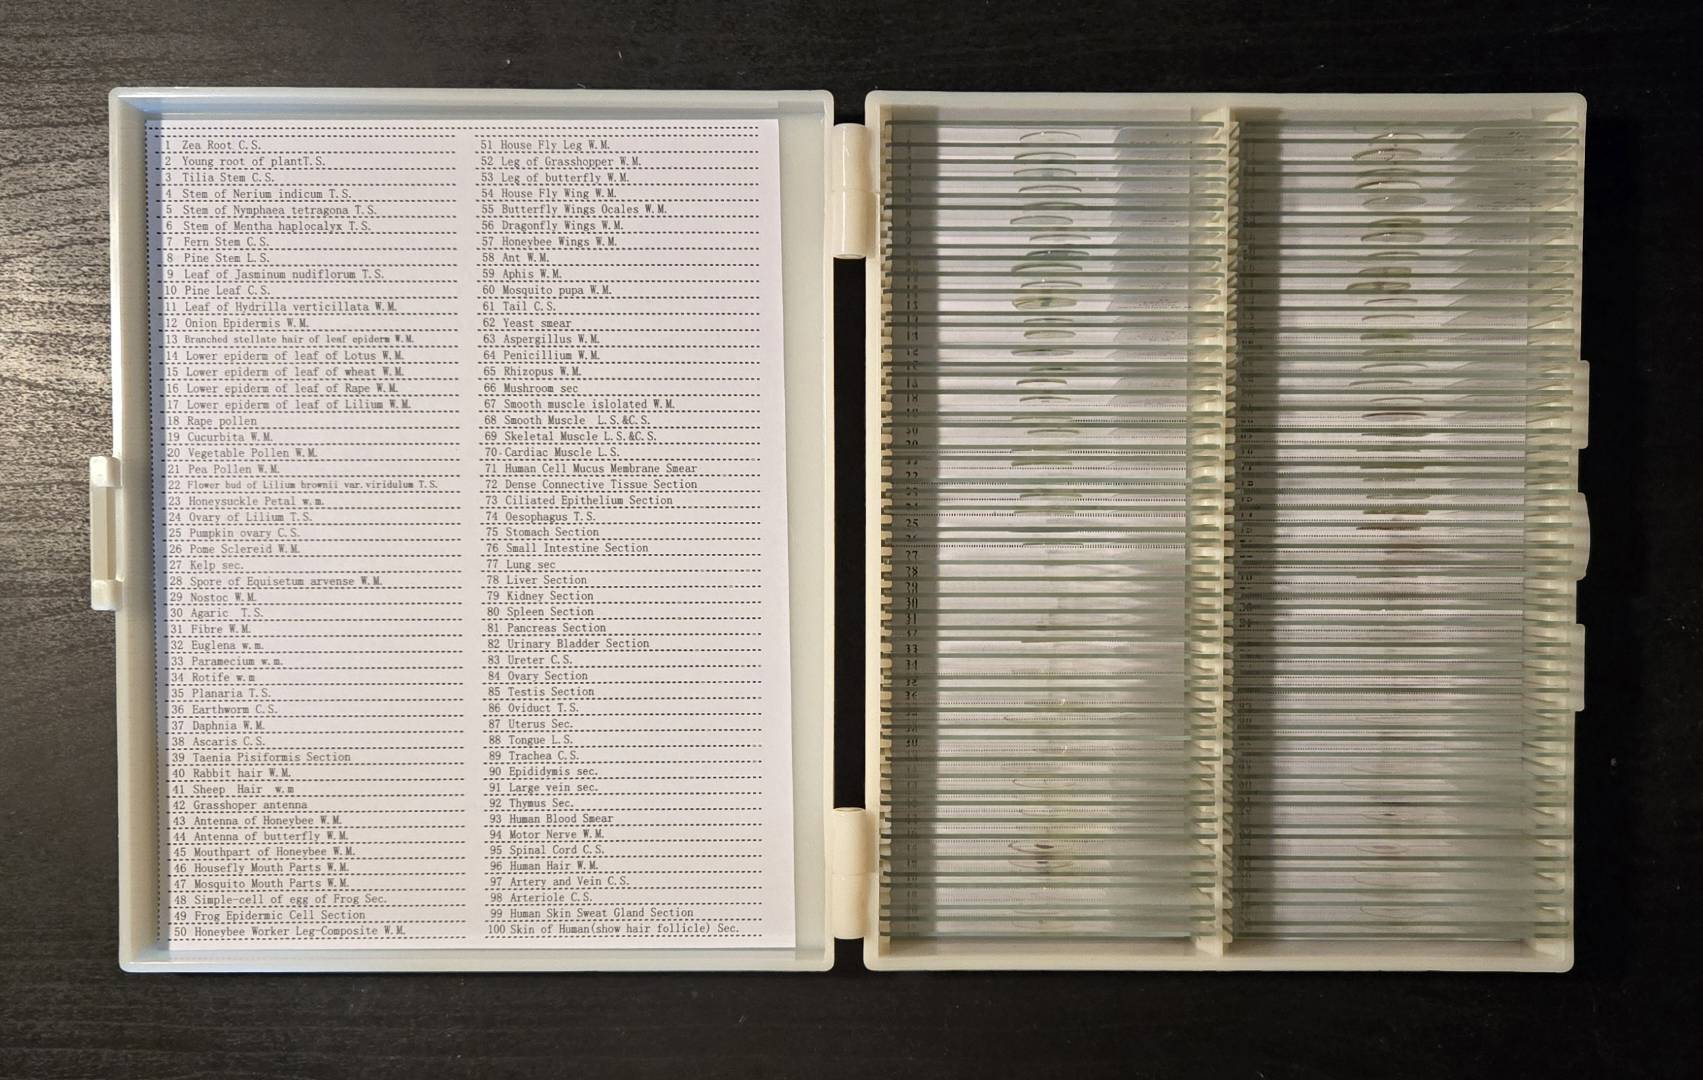 1 Zea Root C.S.
2 Young root of plantT.S.
3 Tilia Stem C.S.
4 Stem of Nerium indicum T.S.
5 Stem of Nymphaea tetragona T.S.
6 Stem of Mentha haplocalyx T.S.
7 Fern Stem C.S.
8 Pine Stem L.S.
9 Leaf of Jasminum nudiflorum T.S.
10 Pine Leaf C.S.
11 Leaf of Hydrilla verticillata W.M.
12 Onion Epidermis W.M.
13 Branched stellate hair of leaf epiderm W.M.
14 Lower epiderm of leaf of Lotus W.M.
15 Lower epiderm of leaf of wheat W.M.
16 Lower epiderm of leaf of Rape W.M.
17 Lower epiderm of leaf of Lilium W.M.
18 Rape pollen
19 Cucurbita W.M.
20 Vegetable Pollen W.M.
21 Pea Pollen W.M.
22 Flower bud of Lilium brownii var.viridulum T.S.
23 Honeysuckle Petal w.m.
24 Ovary of Lilium T.S.
25 Pumpkin ovary C.S.
26 Pome Sclereid W.M.
27 Kelp sec.
28 Spore of Equisetum arvense W.M.
29 Nostoc W.M.
30 Agaric T.S.
31 Fibre W.M.
32 Euglena w.m.
33 Paramecium w.m.
34 Rotife w.m
35 Planaria T.S.
36 Earthworm C.S.
37 Daphnia W.M.
38 Ascaris C.S.
39 Taenia Pisiformis Section
40 Rabbit hair W.M.
41 Sheep Hair w.m
42 Grasshoper antenna
43 Antenna of Honeybee W.M.
44 Antenna of butterfly W.M.
45 Mouthpart of Honeybee W.M.
46 Housefly Mouth Parts W.M.
47 Mosquito Mouth Parts W.M.
48 Simple-cell of egg of Frog Sec.
49 Frog Epidermic Cell Section
50 Honeybee Worker Leg-Composite W.M.
51 House Fly Leg W.M.
52 Leg of Grasshopper W.M.
53 Leg of butterfly W.M.
54 House Fly Wing W.M.
55 Butterfly Wings Ocales W.M.
56 Dragonfly Wings W.M.
57 Honeybee Wings W.M.
58 Ant W.M.
59 Aphis W.M.
60 Mosquito pupa W.M.
61 Tail C.S.
62 Yeast smear
63 Aspergillus W.M.
64 Penicillium W.M.
65 Rhizopus W.M.
66 Mushroom sec
67 Smooth muscle islolated W.M.
68 Smooth Muscle L.S.&C.S.
69 Skeletal Muscle L.S.&C.S.
70 Cardiac Muscle L.S.
71 Human Cell Mucus Membrane Smear
72 Dense Connective Tissue Section
73 Ciliated Epithelium Section
74 Oesophagus T.S.
75 Stomach Section
76 Small Intestine Section
77 Lung sec
78 Liver Section
79 Kidney Section
80 Spleen Section
81 Pancreas Section
82 Urinary Bladder Section
83 Ureter C.S.
84 Ovary Section
85 Testis Section
86 Oviduct T.S.
87 Uterus Sec.
88 Tongue L.S.
89 Trachea C.S.
90 Epididymis sec.
91 Large vein sec.
92 Thymus Sec.
93 Human Blood Smear
94 Motor Nerve W.M.
95 Spinal Cord C.S.
96 Human Hair W.M.
97 Artery and Vein C.S.
98 Arteriole C.S.
99 Human Skin Sweat Gland Section
100 Skin of Human(show hair follicle) Sec.
25
27
28
30
31
33
34